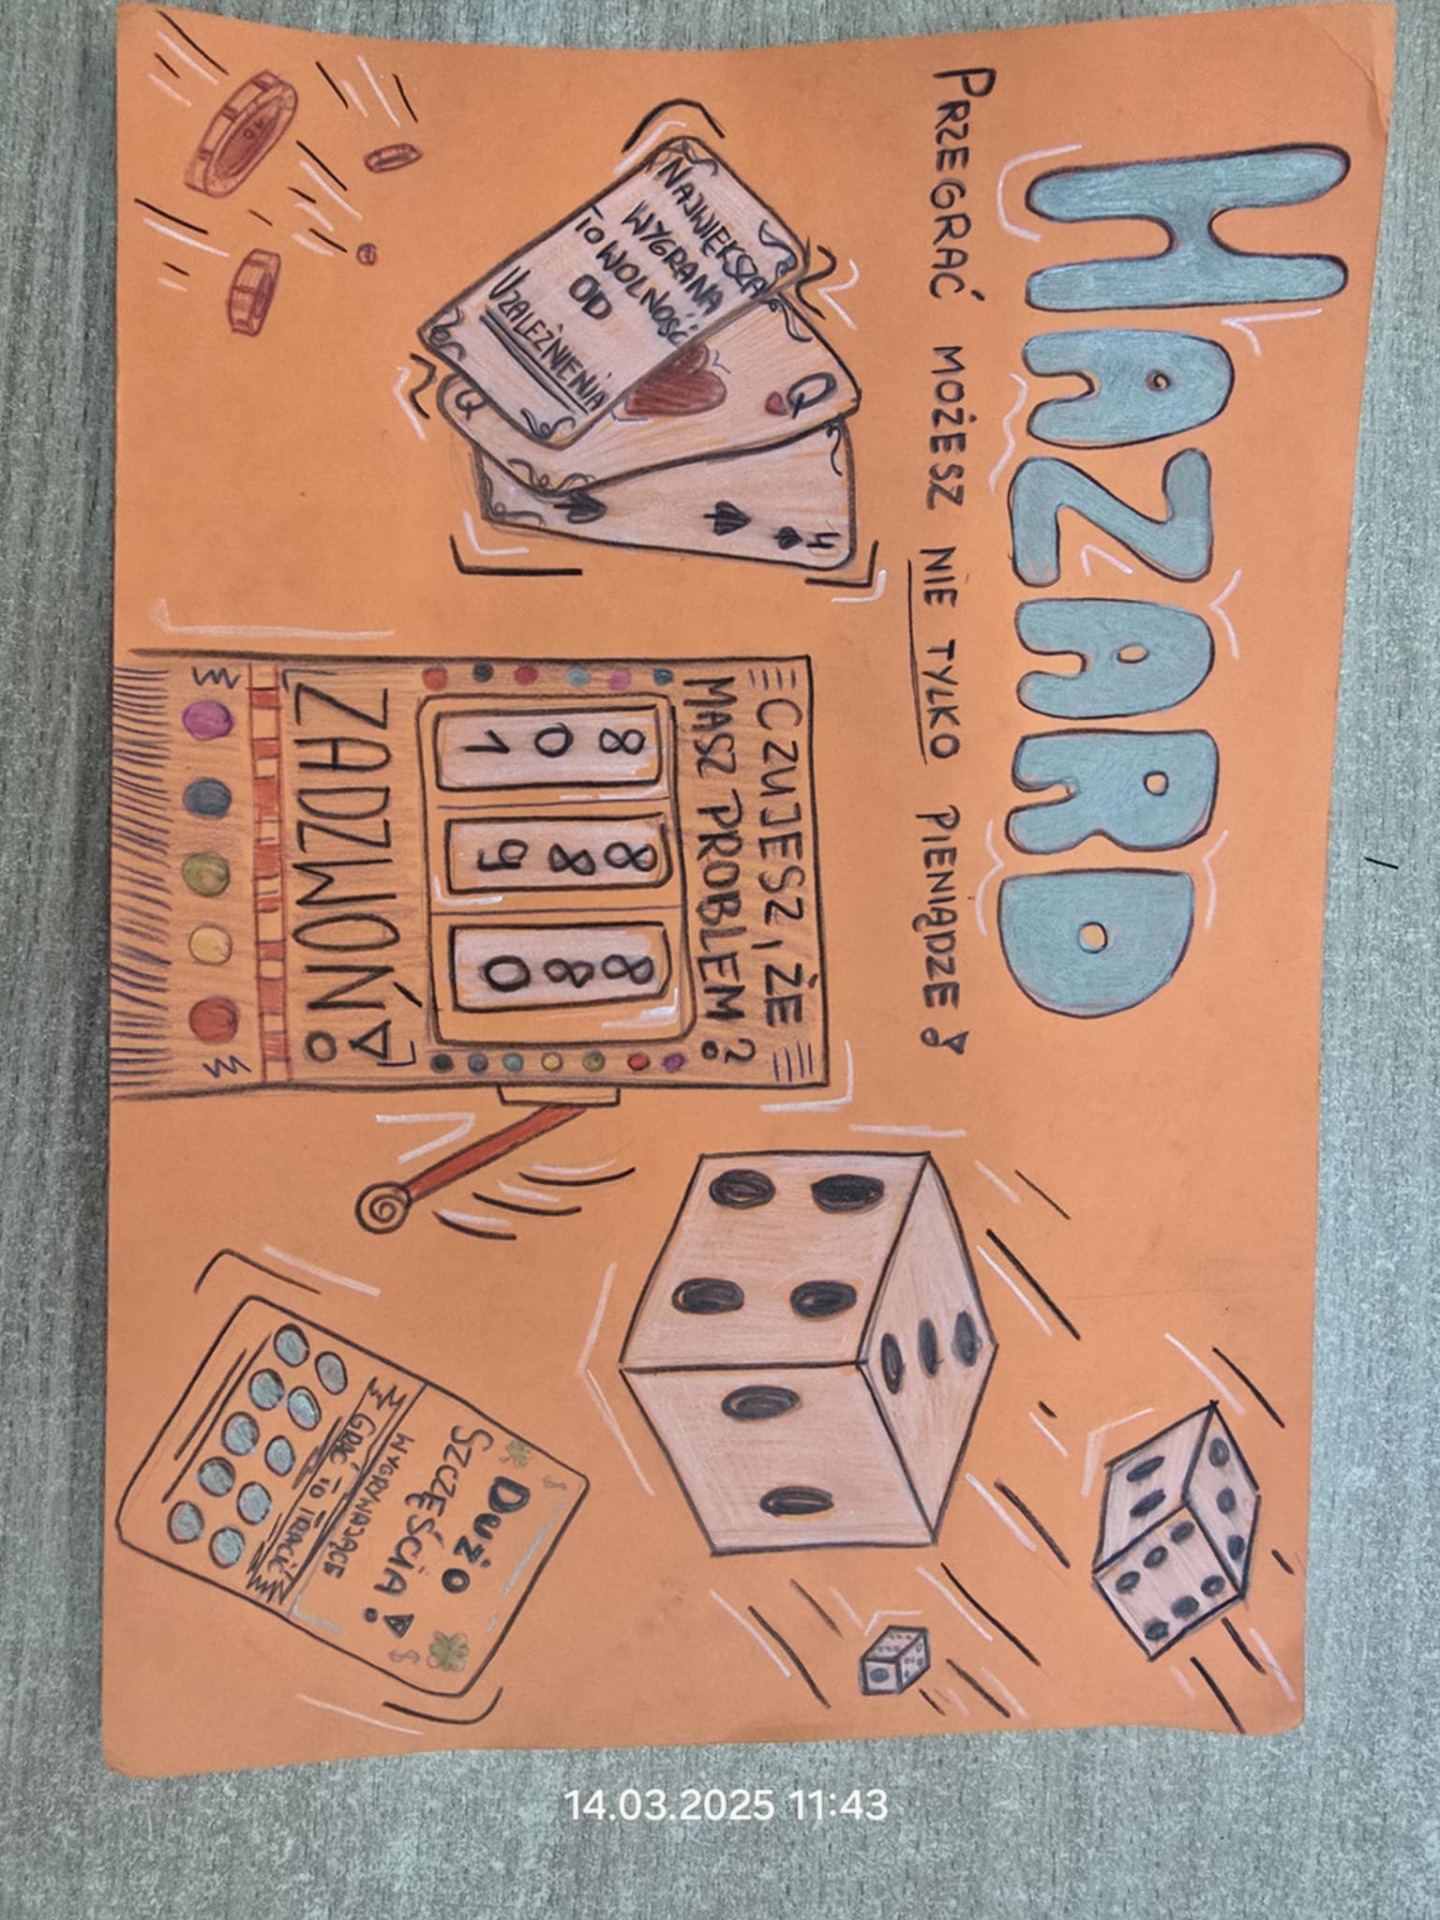 HAZARD
PRZEGRAĆ MOŻESZ NIE TYLKO PIENIĄDZE!
NAJWIĘKSZA
WYGRANA
TO WOLNOŚĆ
OD
UZALEŻNIENIA
Q
Q
4
CZUJESZ, ŻE
MASZ PROBLEM?
801 889 880
ZADZWOŃ!
DUŻO
SZCZĘŚCIA!
WYGRYWAJĄCE
GRAĆ TO TRACIĆ
14.03.2025 11:43